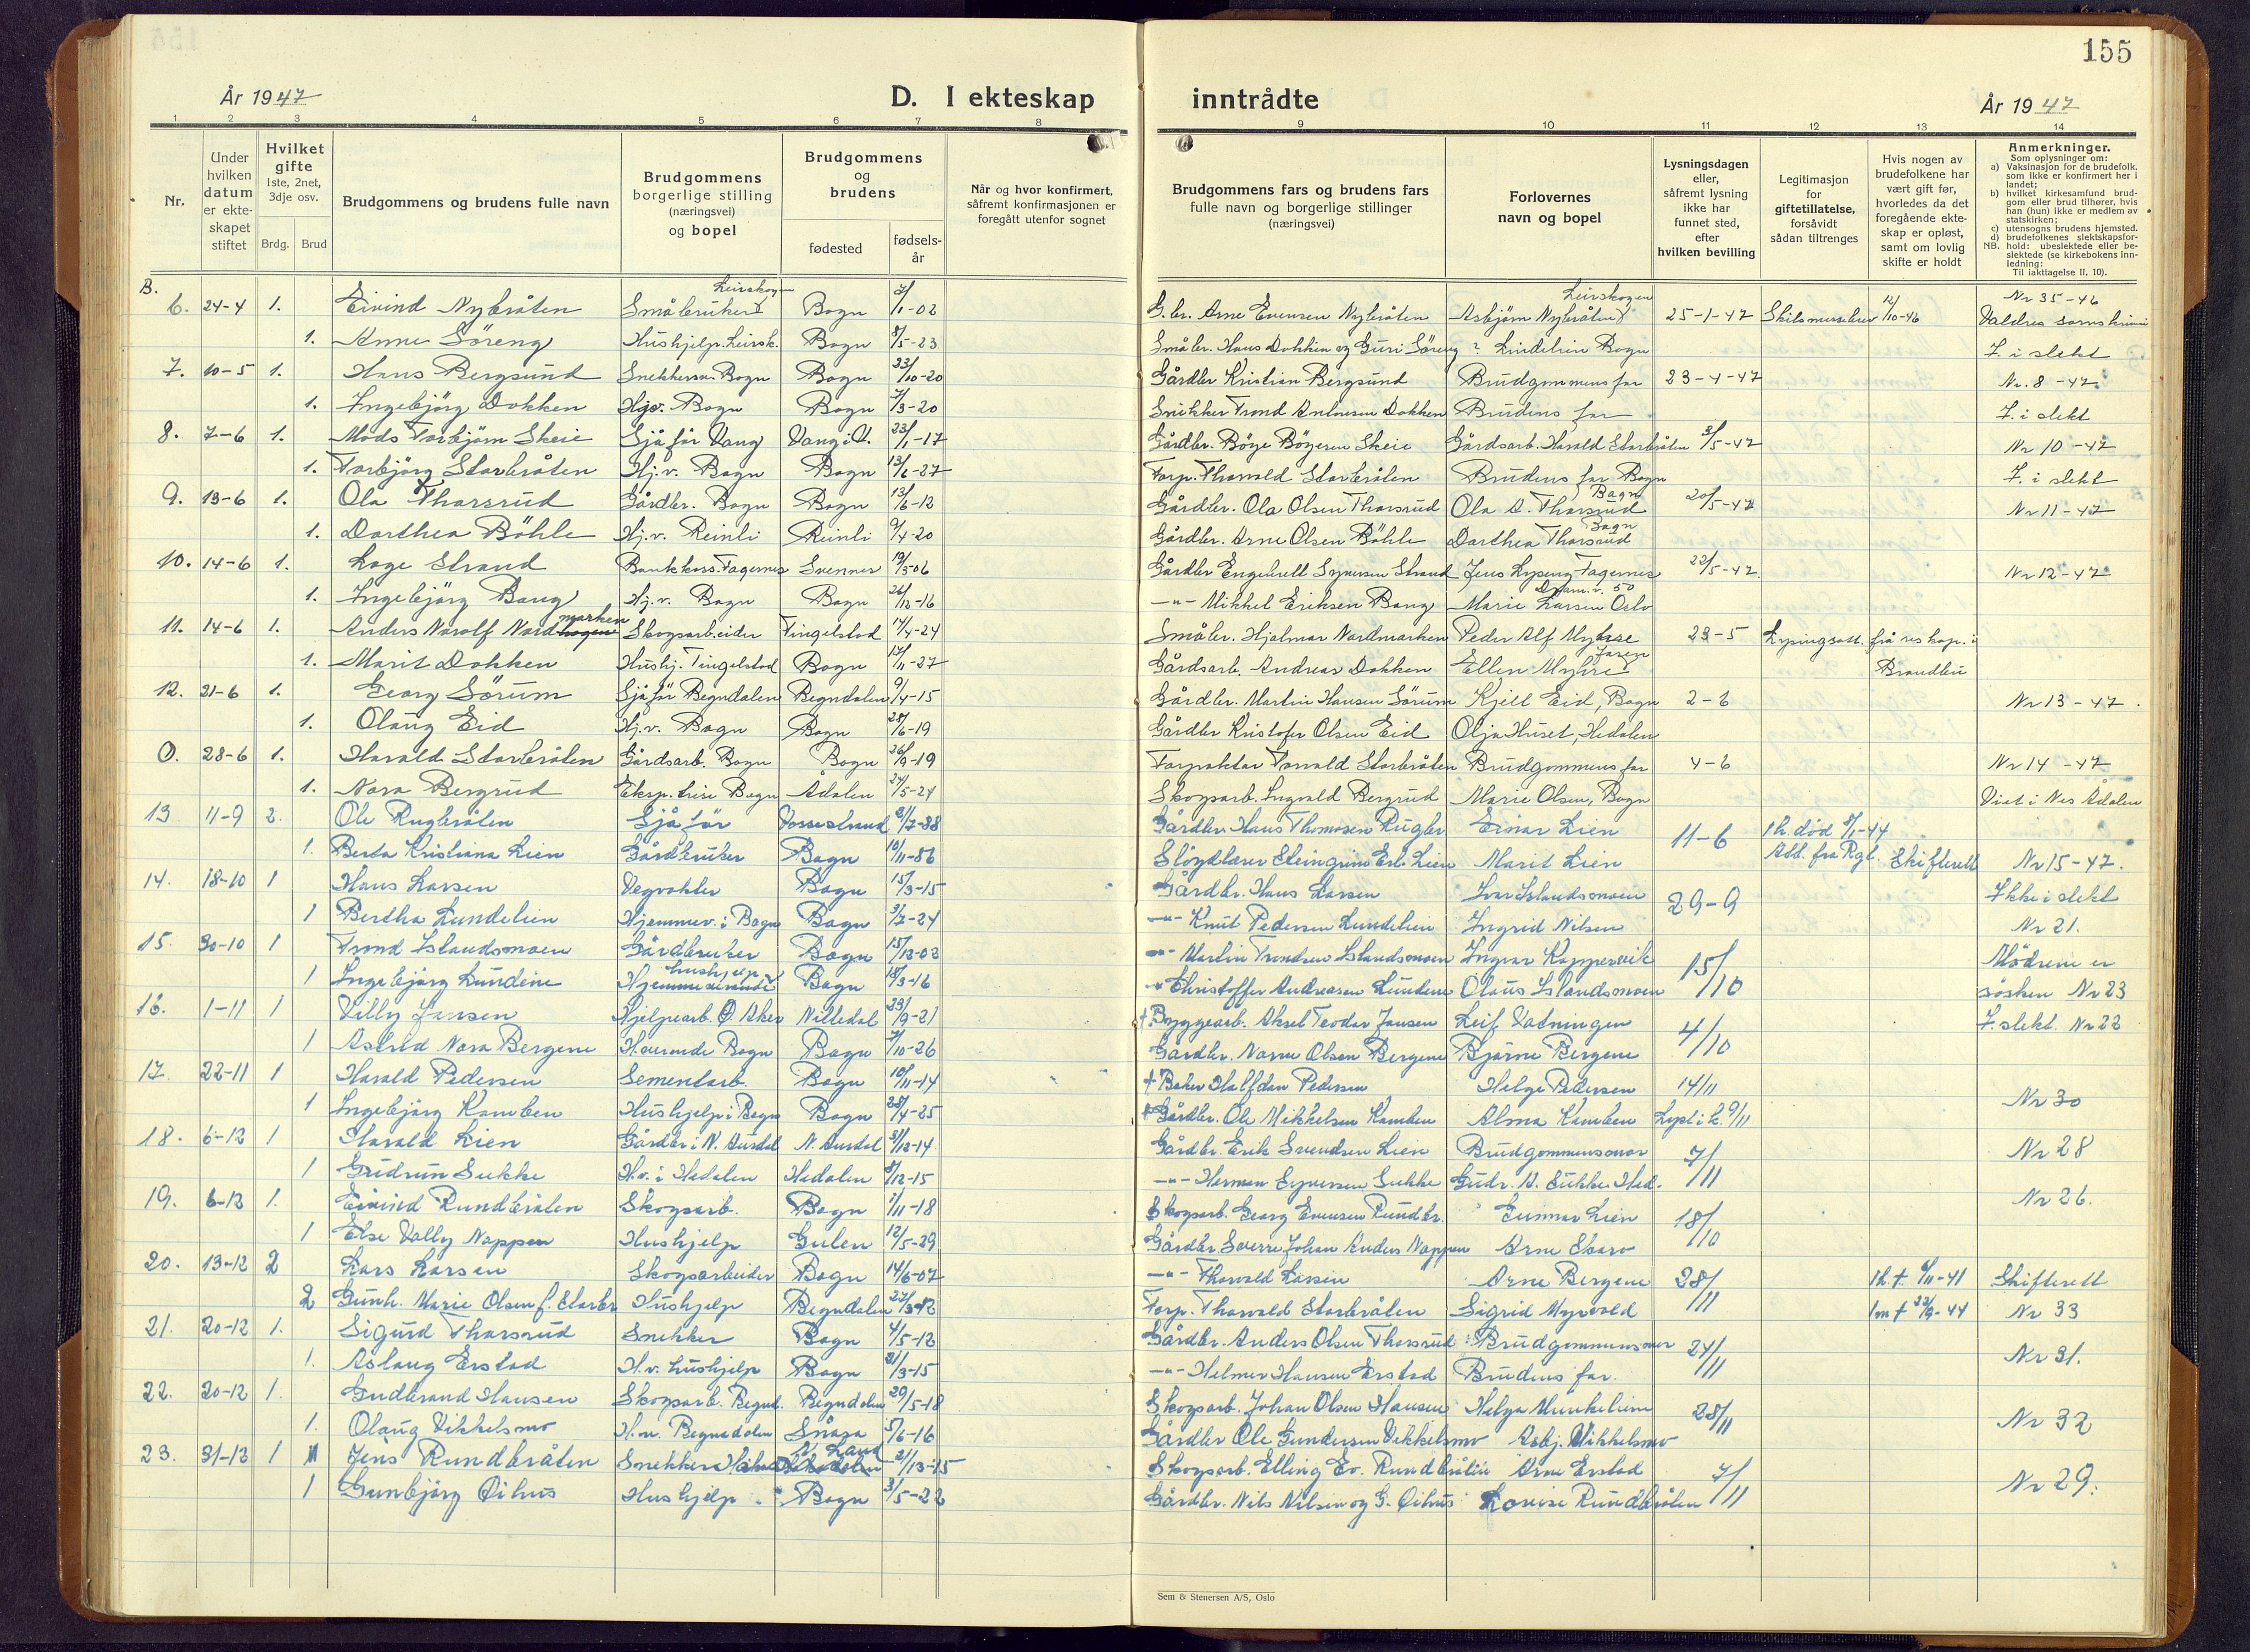 155
År 1947
D. I ekteskap
inntrådte
År 1947
1 2 3 4 5 6 7 8 9 10 11 12 13 14
Nr.
Under hvilken datum er ekte-skapet stiftet
Hvilket gifte
1ste, 2net, 3dje osv.
Brdg. Brud
Brudgommens og brudens fulle navn
Brudgommens borgerlige stilling (næringsvei) og bopel
Brudgommens og brudens
fødested
fødsels-år
Når og hvor konfirmert, såfremt konfirmasjonen er foregått utenfor sognet
Brudgommens fars og brudens fars fulle navn og borgerlige stillinger (næringsvei)
Forlovernes navn og bopel
Lysningsdagen eller, såfremt lysning ikke har funnet sted, efter hvilken bevilling
Legitimasjon for giftetillatelse, forsåvidt sådan tiltrenges
Hvis nogen av brudefolkene har vært gift før, hvorledes da det foregående ekte-skap er opløst, samt om lovlig skifte er holdt
Anmerkninger.
Som oplysninger om:
a) Vaksinasjon for de brudefolk, som ikke er konfirmert her i landet;
b) hvilket kirkesamfund brud-gom eller brud tilhører, hvis han (hun) ikke er medlem av statskirken;
c) utensogns brudens hjemsted.
d) brudefolkenes slektskapsfor-hold: ubeslektede eller be-slektede (se kirkebokens Inn-ledning:
NB. Til iakttagelse II. 10).
B.
6. 24-4 1. Eivind Nybråten Småbruker Leirskogen Bagn 7/1-02 G.br. Arne Evensen Nybråten Asbjørn Nybråten Leirskogen 25-1-47 12/10-46 Nr 35-46
1. Anne Söreng Hushjelp. Leirsk. Bagn 8/5-23 Småbr. Hans Dokken og Guri Söreng ? Lindelien Bagn I. i slekt
7. 10-5 1. Hans Bergsund Snekkersv. Bagn Bagn 23/10-20 Gårdbr Kristian Bergsund Brudgommens far 23-4-47 Nr. 8-47
1. Ingebjörg Dokken Hjv. Bagn Bagn 7/3-20 Snikker Trond Antonsen Dokken Brudens far I. i slekt
8. 7-6 1. Mads Torbjörn Skeie Sjåför Vang Vang i V. 23/1-17 Gårdbr. Böye Böyesen Skeie Gårdsarb. Harald Storbråten 3/5-47 Nr 10-47
1. Torbjörg Storbråten Hj.v. Bagn Bagn 13/6-27 Forp. Thorvald Storbråten Brudens far Bagn I. i slekt
9. 13-6 1. Ola Thorsrud Gårdbr. Bagn Bagn 13/6-12 Gårdbr. Ola Olsen Thorsrud Ola O. Thorsrud Bagn 20/5-47 Nr 11-47
1. Dorthea Böhle Hj.v. Reinli Reinli 9/4-20 Gårdbr. Arne Olsen Böhle Dorthea Thorsrud Bagn
10. 14-6 1. Lage Strand Bankkass. Fagernes Svennes 19/3-06 Gårdbr Engebrett Syversen Strand Jens Fagernes 22/5-47 Nr 12-47
1. Ingebjörg Bang Hj.v. Bagn Bagn 26/12-16 -"- Mikkel Eriksen Bang Marie Larsen Oslo
11. 14-6 1. Anders Narolf Nordmarken Skogsarbeider Tingelstad 14/4-24 Småbr. Hjalmar Nordmarken Peder Alf Myhre 23-5 Lysingsatt. frå res kap. i
1. Marit Dokken Hushj. Tingelstad Bagn 17/11-27 Gårdsarb. Andreas Dokken Ellen Myhre Jaren Brandbu
12. 21-6 1. Georg Sörum Sjåför Begndalen Begndalen 9/4-15 Gårdbr. Martin Hansen Sörum Kjell Eid, Bagn 2-6 Nr 13-47.
1. Olaug Eid Hj.v. Bagn Bagn 28/6-19 Gårdbr Kristofer Olsen Eid Olja Huset, Hedalen
O. 28-6 1. Harald Storbråten Gårdsarb. Bagn Bagn 26/9-19 Forpaktar Torvald Storbråten Brudgommens far 4-6 Nr 14-47
1. Nora Bergrud Eksp.trise Bagn Ådalen 24/5-24 Skogsarb. Ingvald Bergrud Marie Olsen, Bagn Viet i Nes Ådalen
13 11-9 2. Ole Rugbråten Sjåför Vossestrand 2/7-88 Gårdbr. Hans Thomasen Rugbr Einar Lien 11-6 1h. död 8/1-44
1. Berta Kristiana Lien Gårdbruker Bagn 10/11-86 Slöydlærer Steingrim Lien Marit Lien Att. fra Rgl. Skifterett Nr 15-47.
14. 18-10 1 Hans Larsen Vegvokter Bagn 15/3-15 Gårdbr. Hans Larsen Ivar Islandsmoen 29-9 Ikke i slekt
1 Bertha Lundelien Hjemmev. i Bagn Bagn 3/7-24 -"- Knut Pedersen Lundelien Ingrid Nilsen Nr 21.
15. 30-10 1 Trond Islandsmoen Gårdbruker Bagn 15/12-02 -"- Martin Trondsen Islandsmoen Ingvar Koppervik 15/10 Mödrene er
1 Ingebjörg Lundene hushjelp Bagn 18/3-16 -"- Christoffer Andreasen Lundene Olaus Islandsmoen søsken Nr 23
16. 1-11 1 Villy Jansen Hjelpearb. Ö. Aker Nittedal 23/9-21 † Byggearb. Aksel Teodor Jansen Leif Vatningen 4/10 I. slekt. Nr 22
1 Astrid Nora Bergene H.værende Bagn Bagn 7/10-26 Gårdbr. Olsen Bergene Bjarne Bergene
17. 22-11 1 Harald Pedersen Sementarb. Bagn 10/11-14 † Baker Halfdan Pedersen Helge Pedersen 14/11
1 Ingebjörg Kamben Hushjelp i Bagn Bagn 28/4-25 Gårdbr. Ole Mikkelsen Kamben Alma Kamben Lyst i k. 9/11 Nr 30
18. 6-12 1 Harald Lien Gårdbr i N. Aurdal N. Aurdal 31/12-14 Gårdbr. Erik Svendsen Lien Brudgommens mor 7/11 Nr 28
1 Gudrun Sukke H.v. i Hedalen Hedalen 8/12-15 -"- Herman Syversen Sukke Gudr. H. Sukke Hed.
19. 6-12 1. Eivind Rundbråten Skogsarb. Bagn 1/11-18 Skogsarb. Georg Evensen Rundbr. Gunnar Lien 18/10 Nr 26.
1 Else Vally Nappen Hushjelp Gulen 12/5-29 Gårdbr. Sverre Johan Anders Nappen Arne Skaro
20. 13-12 2 Lars Larsen Skogsarbeider Bagn 14/6-07 -"- Thorvald Larsen Arne Bergene 28/11 1h. † 6/11-41 Skifterett
2 Gunh. Marie Olsen f. Storbr Hushjelp Begndalen 27/3-12 Forp. Thorvald Storbråten Sigrid Myrvold 1m † Nr 33
21. 20-12 1. Sigurd Thorsrud Snekker Bagn 4/5-12 Gårdbr. Anders Olsen Thorsrud Brudgommens mor 24/11
1. Aslaug Erstad H.v. hushjelp Bagn 21/3-15 -"- Helmer Hansen Erstad Brudens far. Nr 31.
22. 20-12 1. Gudbrand Hansen Skogsarb. Begnd. Begndalen 29/5-18 Skogsarb. Johan Olsen Hansen Helga Munkelien 28/11
1. Olaug Vikkelsmo H.v. Begnadalen Snåsa 5/6-16 Gårdbr Ole Gundersen Vikkelsmo Asbj. Mikkelsmo Nr 32
23. 31-12 1 Jens Rundbråten Snekker N. Land 2/12-15 Skogsarb. Elling Ev. Rundbråten Arne Erstad 7/11
1 Gunbjörg Oihus Hushjelp -"- Bagn 3/5-22 Gårdbr. Nils Nilsen og G. Oihus Lovise Rundbråten Nr 29.
Sem & Stenersen A/S, Oslo